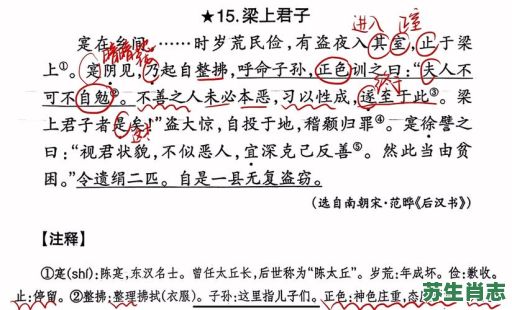 ★15.梁上君子
进入 正室
寔在乡间……时岁荒民俭，有盗夜入其室，止于梁
暗暗地
上①。寔阴见，乃起自整拂，呼命子孙，正色训之曰：“夫人不
终于
可不自勉②。不善之人未必本恶，习以性成，遂至于此③。梁
上君子者是矣！”盗大惊，自投于地，稽颡归罪④。寔徐譬之
曰：“视君状貌，不似恶人，宜深克己反善⑤。然此当由贫
困。”令遗绢二匹。自是一县无复盗窃。
（选自南朝宋·范晔《后汉书》）
【注释】
①寔(shí)：陈寔，东汉名士。曾任太丘长，后世称为“陈太丘”。岁荒：年成坏。俭：歉收。
止：停留。②整拂：整理拂拭(衣服)。子孙：这里指儿子们。正色：神色庄重，态
苏生肖志